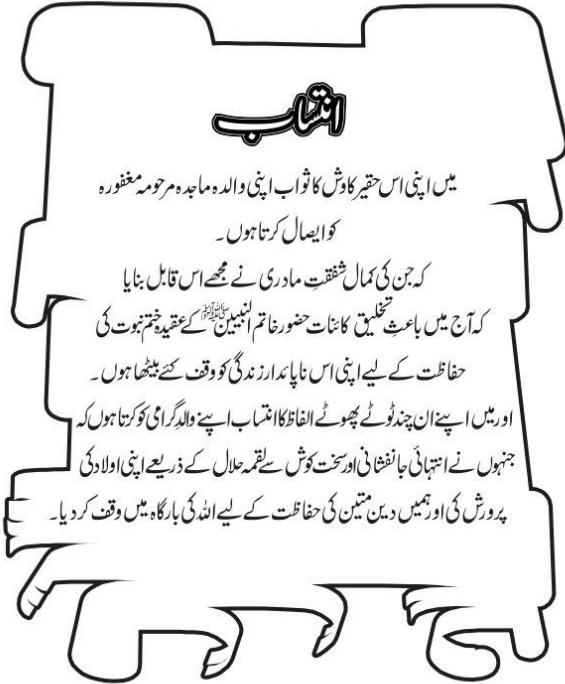 انتساب
میں اپنی اس حقیر کاوش کا ثواب اپنی والدہ ماجدہ مرحومہ مغفورہ
کو ایصال کرتا ہوں۔
کہ جن کی کمال شفقتِ مادری نے مجھے اس قابل بنایا
کہ آج میں باعثِ تخلیق کائنات حضور خاتم النبیین ﷺ کے عقیدہ ختم نبوت کی
حفاظت کے لیے اپنی اس ناپائدار زندگی کو وقف کئے بیٹھا ہوں۔
اور میں اپنے ان چند ٹوٹے پھوٹے الفاظ کا انتساب اپنے والدِ گرامی کو کرتا ہوں کہ
جنہوں نے انتہائی جانفشانی اور سخت کوش سے لقمہ حلال کے ذریعے اپنی اولاد کی
پرورش کی اور ہمیں دین متین کی حفاظت کے لیے اللہ کی بارگاہ میں وقف کر دیا۔